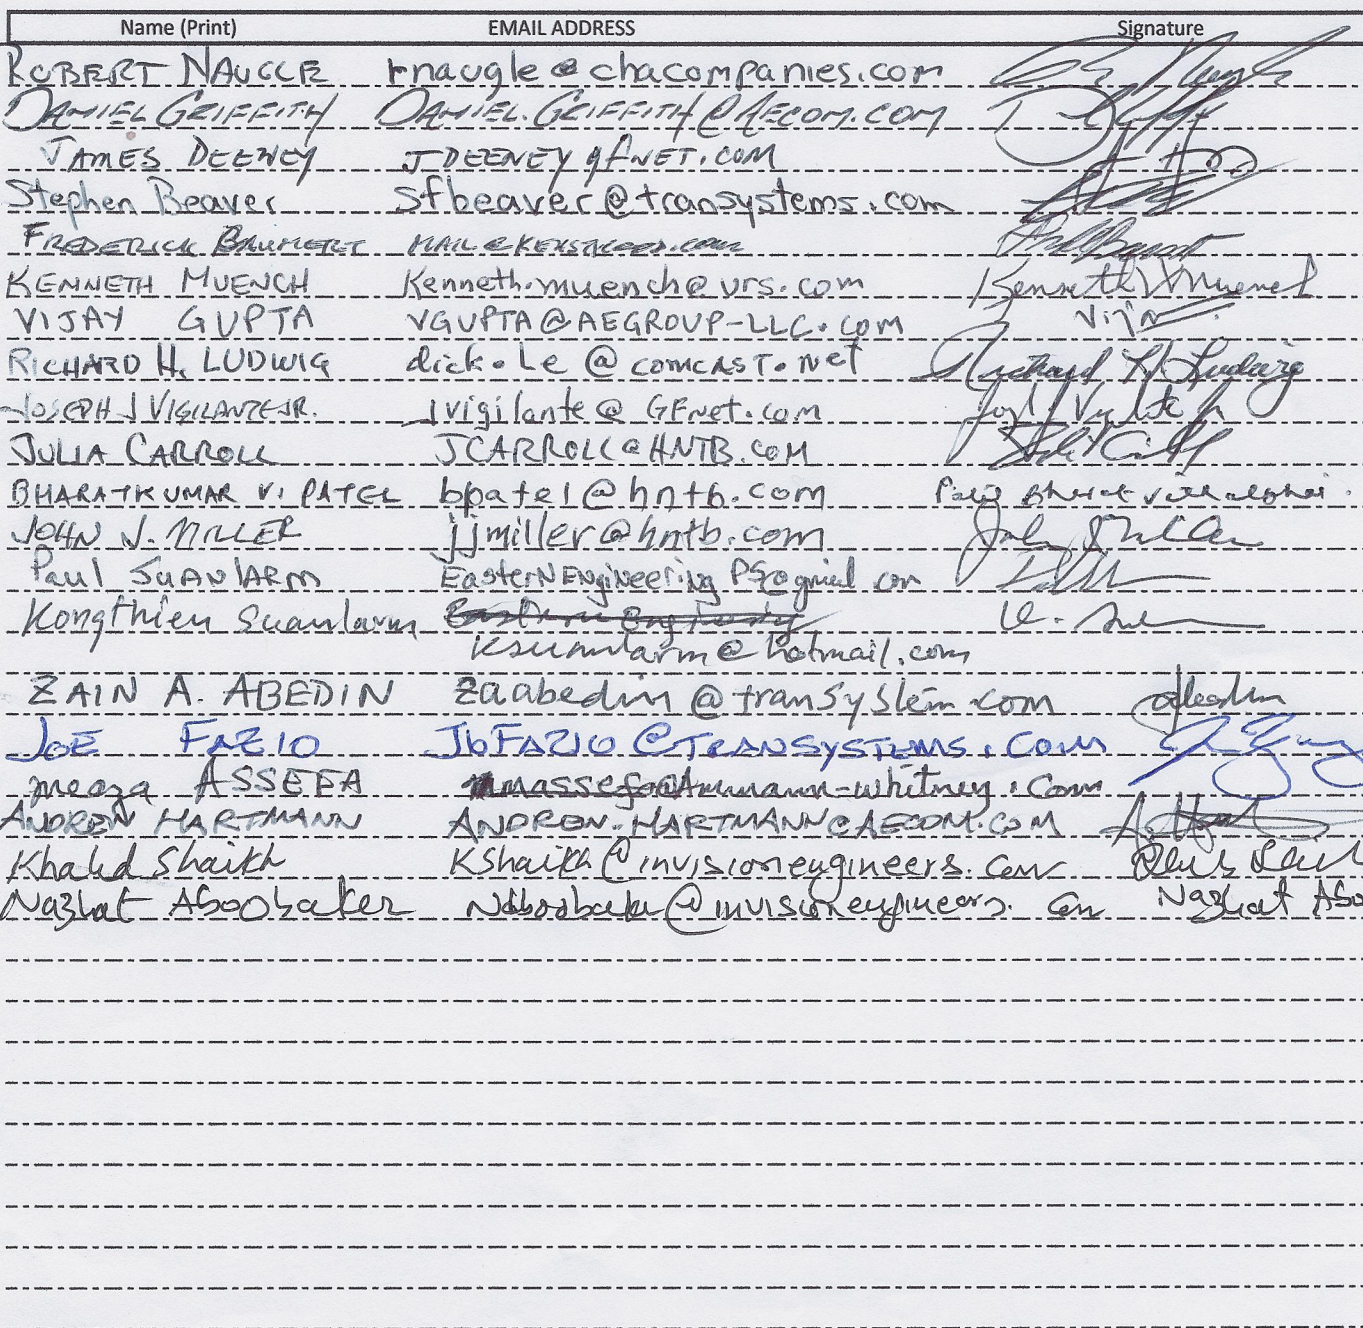 Name (Print) EMAIL ADDRESS Signature
ROBERT NAUGLE rnaugle@chacompanies.com
DANIEL GRIFFITH DANIEL.GRIFFITH@AECOM.COM
JAMES DEENEY JDEENEY gfNET.COM
Stephen Beaver sfbeaver@transystems.com
FREDERICK BAUMERT
KENNETH MUENCH Kenneth.muench@urs.com Kenneth Muench
VIJAY GUPTA VGUPTA@AEGROUP-LLC.COM
RICHARD H. LUDWIG dick.Le@comcast.net Richard H Ludwig
JOSEPH J VIGILANTE JR. jvigilante@GFnet.com
JULIA CARROLL JCARROLL@HNTB.COM
BHARATKUMAR V. PATEL bpatel@hntb.com
JOHN J. MILLER jjmiller@hntb.com
Paul SUANLARM EasternEngineering
Kongthieu Suanlarm
Ksuanlarm@hotmail.com
ZAIN A. ABEDIN zaabedin@transystem.com
JOE FAZIO JbFAZIO@TRANSYSTEMS.COM
meaza ASSEFA massefa@Ammann-whitney.com
ANDREW HARTMANN ANDREW.HARTMANN@AECOM.COM
Khalid Shaikh KShaikh@invisionengineers.com
Nazhat Aboobaker Naboobaker@invisionengineers.com Nazhat Abo